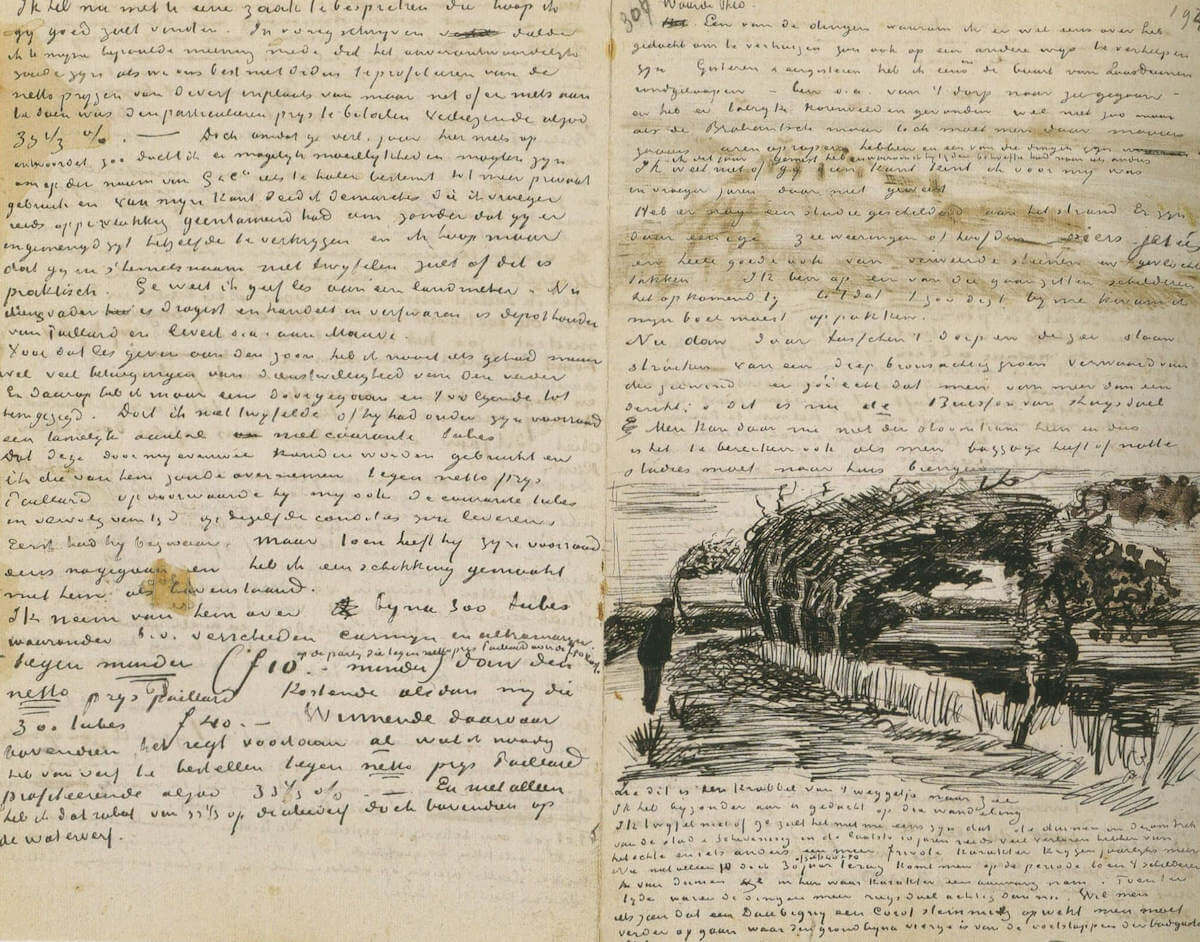 Ik heb nu met U eene zaak te bespreken die hoop ik
gij goed zult vinden. In vorig schrijven deelde
ik U mijne bepaalde meening mede dat het onverantwoordelijk
zijn als we ons best niet deden te profiteeren van de
netto prijzen van de verf in plaats van maar net of er niets aan
te doen was den particulieren prijs te betalen verliezende alzoo
33 1/3 %. — Doch omdat ge verl. jaar hier niets op
antwoordet, zoo dacht ik er mogelijk moeilijkheden mogten zijn
om op den naam van G & Cº iets te halen bestemd tot meer privaat
gebruik en van mijn kant deed ik demarches die ik vroeger
reeds oppervlakkig geentameerd had om zonder dat gij er
in gemengd zijt hetzelfde te verkrijgen en ik hoop maar
dat gij in s'hemelsnaam niet twyfelen zult of dit is
praktisch. Ge weet ik geef les aan een landmeter. Nu
diens vader is drogist en handelt in verfwaren is depothouder
van Paillard en levert o.a. aan Mauve.
Voor dat les geven aan den zoon, heb ik nooit iets gehad maar
wel veel betuigingen van dienstwilligheid van den vader
En daarop heb ik maar eens doorgegaan en 't volgende tot
hem gezegd. Dat ik niet twyfelde of hij had onder zijn voorraad
een tamelijk aantal niet courante tubes
Dat deze door mij evenwel konden worden gebruikt en
ik die van hem zoude overnemen tegen netto prijs
Paillard op voorwaarde hij mij ook de courante tubes
in vervolg van tijd op dezelfde condities zou leveren.
Eerst had hij bezwaar. maar toen heeft hij zijn voorraad
eens nagegaan en heb ik een schikking gemaakt
met hem als bovenstaand.
Ik neem van hem over bijna 300 tubes
waaronder b.v. verscheiden carmijn en ultramarijn
tegen minder (f 10.- minder) dan den
netto prijs Paillard kostende alsdan mij die
300 tubes f 40.- Winnende daarvoor
bovendien het regt voortaan al wat ik noodig
heb van verf te bestellen tegen netto prijs Paillard
profiteerende alzoo 33 1/3 %. — En niet alleen
heb ik dat rabat van 33 1/3 op de olieverf doch bovendien op
de waterverf.
Waarde Theo.
Een van de dingen waarom ik er wel eens over heb
gedacht om te verhuizen zou ook op een andere wijs te verhelpen
zijn Gisteren & eergisteren heb ik eens de buurt van Loosduinen
rondgeloopen – ben o.a. van 't dorp naar zee gegaan –
en heb er heerlijke korenvelden gevonden wel niet zoo mooi
als de Brabantsche maar toch moet men daar maaiers
zaaiers aren oprapers hebben en een van die dingen zijn
Ik weet niet of gij dien kant kent ik voor mij was
in vroeger jaren daar niet geweest
Heb er nog een studie geschilderd aan het strand Er zijn
daar eenige zeeweeringen of hoofden – piers, jetées
en heele goede ook van verweerde steenen en gevlochten
takken Ik ben op een van die gaan zitten schilderen
het opkomend tij totdat 't zoo digt bij me kwam ik
mijn boel moest oppakken.
Nu dan daar tusschen 't dorp en de zee staan
struiken van een diep bronsachtig groen verwaaid van
den zeewind en zóó echt dat men om meer dan een
denkt: o dit is nu de Buisson van Ruysdael
Men kan daar nu met den stoomtram heen en dus
is het te bereiken ook als men baggage heeft of natte
studies moet naar huis brengen
Zie dit is een krabbel van 't weggetje naar zee
Ik heb bijzonder aan U gedacht op die wandeling
Ik twyfel niet of ge zult het met me eens zijn dat de duinen
van de stad & Schevening in de laatste 10 jaren reeds veel verloren hebben van
het echte en iets anders een meer frivole karakter krijgen jaarlijks meer
Nu niet alleen 10 doch 30 jaar terug komt men op de periode toen 't schilderen
van duinen in hun waar karakter een aanvang nam. Toen ter
tijde waren de dingen meer ruysdael achtig dan nu. Wil men
iets zien dat een Daubigny een Corot stemming opwekt men moet
verder op gaan waar de grond bijna vierge is van de voetstappen der badgasten